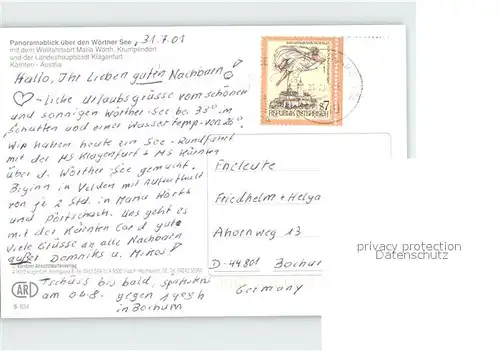 Panoramablick über den Wörther See, 31.7.01
mit dem Wallfahrtsort Maria Wörth, Krumpendorf
und der Landeshauptstadt Klagenfurt
Kärnten - Austria
Hallo, Ihr Lieben guten Nachbarn!
♡-liche Urlaubsgrüsse vom schönen
und sonnigen Wörther-See bei 35° im
Schatten und einer Wassertemp. von 26°.
Wir haben heute ein See-Rundfahrt
mit der MS Klagenfurt + MS Kärnten
über d. Wörther-See gemacht.
Beginn in Velden mit Aufenthalt
von je 2 Std. in Maria Wörth
und Pörtschach. Uns geht es
mit der Kärnten Card gut
Viele Grüsse an alle Nachbarn
außer Domniks u. Mikos!
Tschüss bis bald, spätestens
am 04.8. gegen
in Bochum
REPUBLIK ÖSTERREICH
S7
Eheleute
Friedhelm + Helga
Ahornweg 13
D-44801 Bochum
Germany
privacy protection
Datenschutz